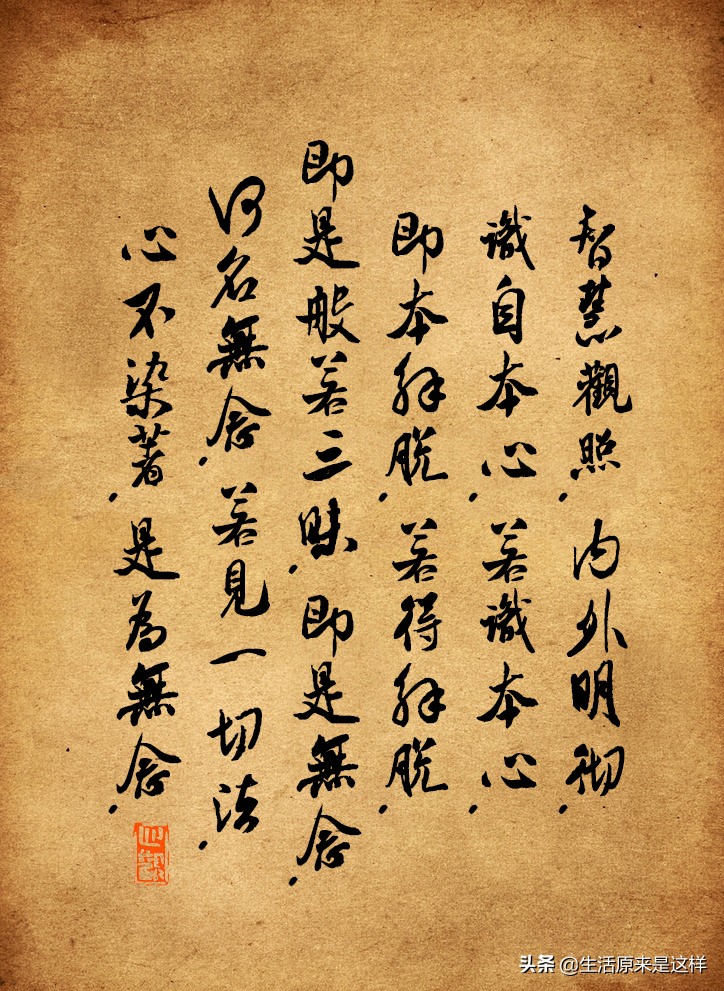 智慧觀照，内外明彻，
識自本心，若識本心，
即本解脱，若得解脱，
即是般若三昧，即是無念，
何名無念，若見一切法，
心不染著，是為無念，
头条 @生活原来是这样